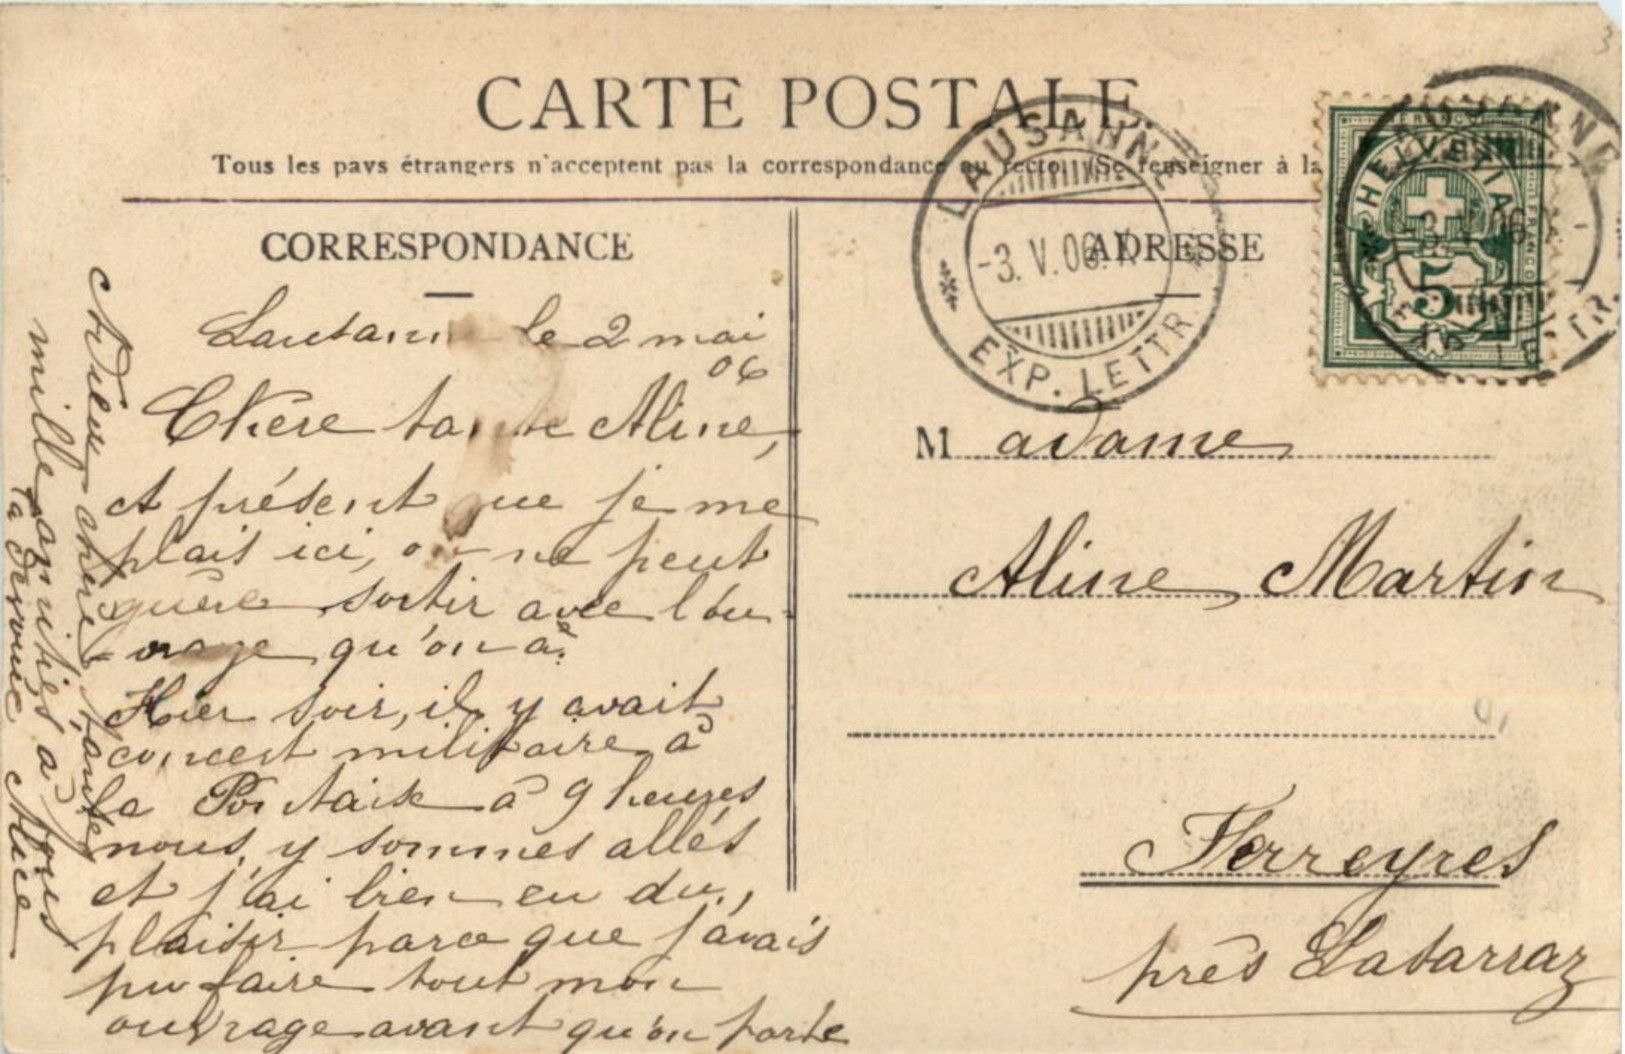 CARTE POSTALE.
Tous les pays étrangers n'acceptent pas la correspondance au recto. (Se renseigner à la
CORRESPONDANCE
Lausanne le 2 mai
06
Chère tante Aline,
A présent que je me
plais ici, on ne peut
guère sortir avec l'ou-
-vrage qu'on a.
Hier soir, il y avait
concert militaire à
la Pontaise à 9 heures
nous y sommes allés
et j'ai bien eu du
plaisir parce que j'avais
pu faire tout mon
ouvrage avant qu'on parte
Adieu chère tante
mille amitiés à vous
ta dévouée Alice
ADRESSE
LAUSANNE
-3.V.06.X
EXP. LETTR.
HELVETIA
FRANCO
5
LAUSANNE
Madame
Aline Martin
Ferreyres
près Lasarraz